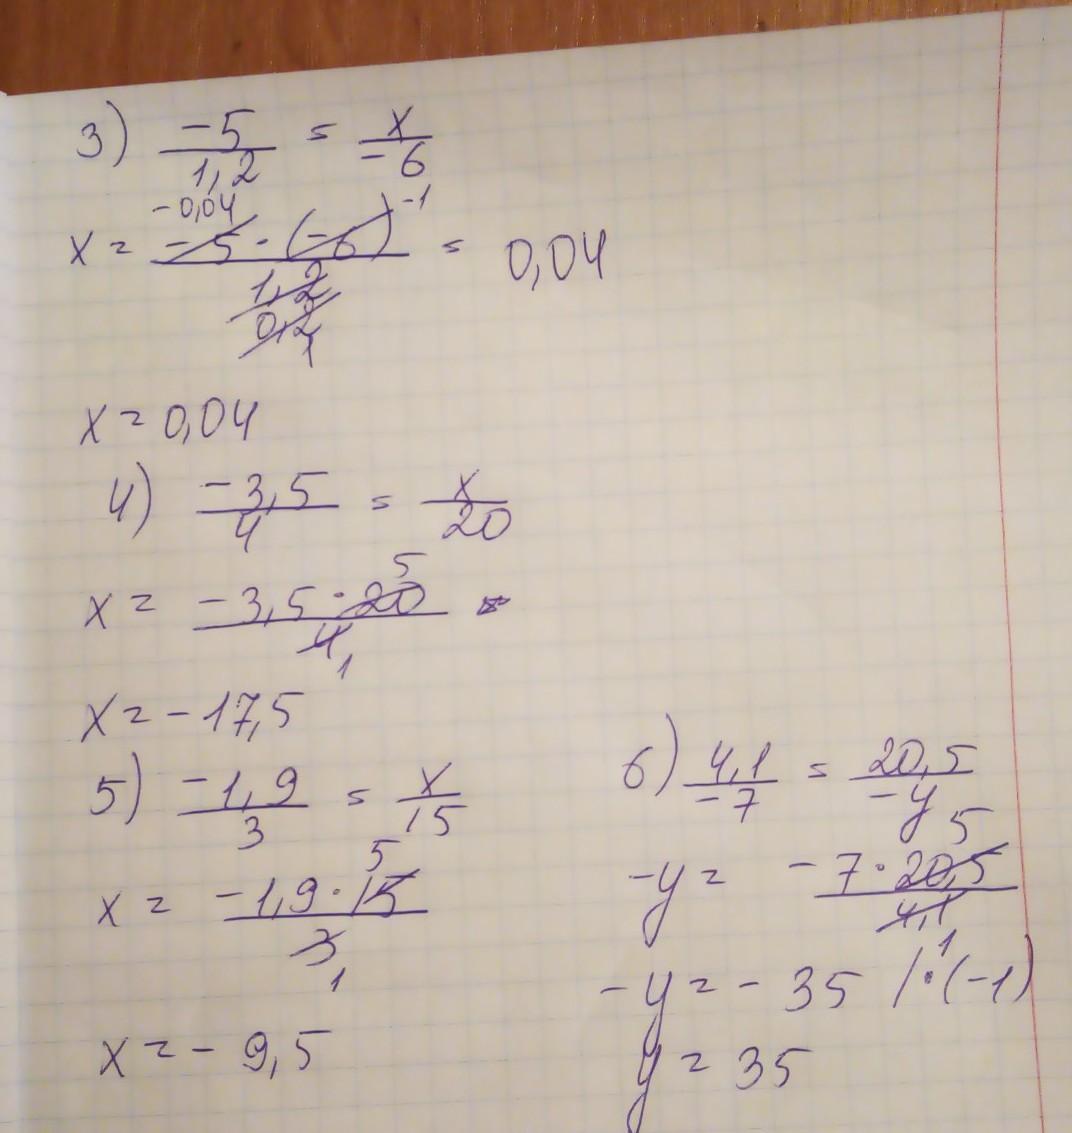 3) -5/1,2 = x/-6
x = -5 · (-6)/1,2 = 0,04
-0,04 -1
0,2
1
x = 0,04
4) -3,5/4 = x/20
x = -3,5 · 20/4
5
1
x = -17,5
5) -1,9/3 = x/15
x = -1,9 · 15/3
5
1
x = - 9,5
6) 4,1/-7 = 20,5/-y
-y = -7 · 20,5/4,1
5
1
-y = - 35 /·(-1)
y = 35